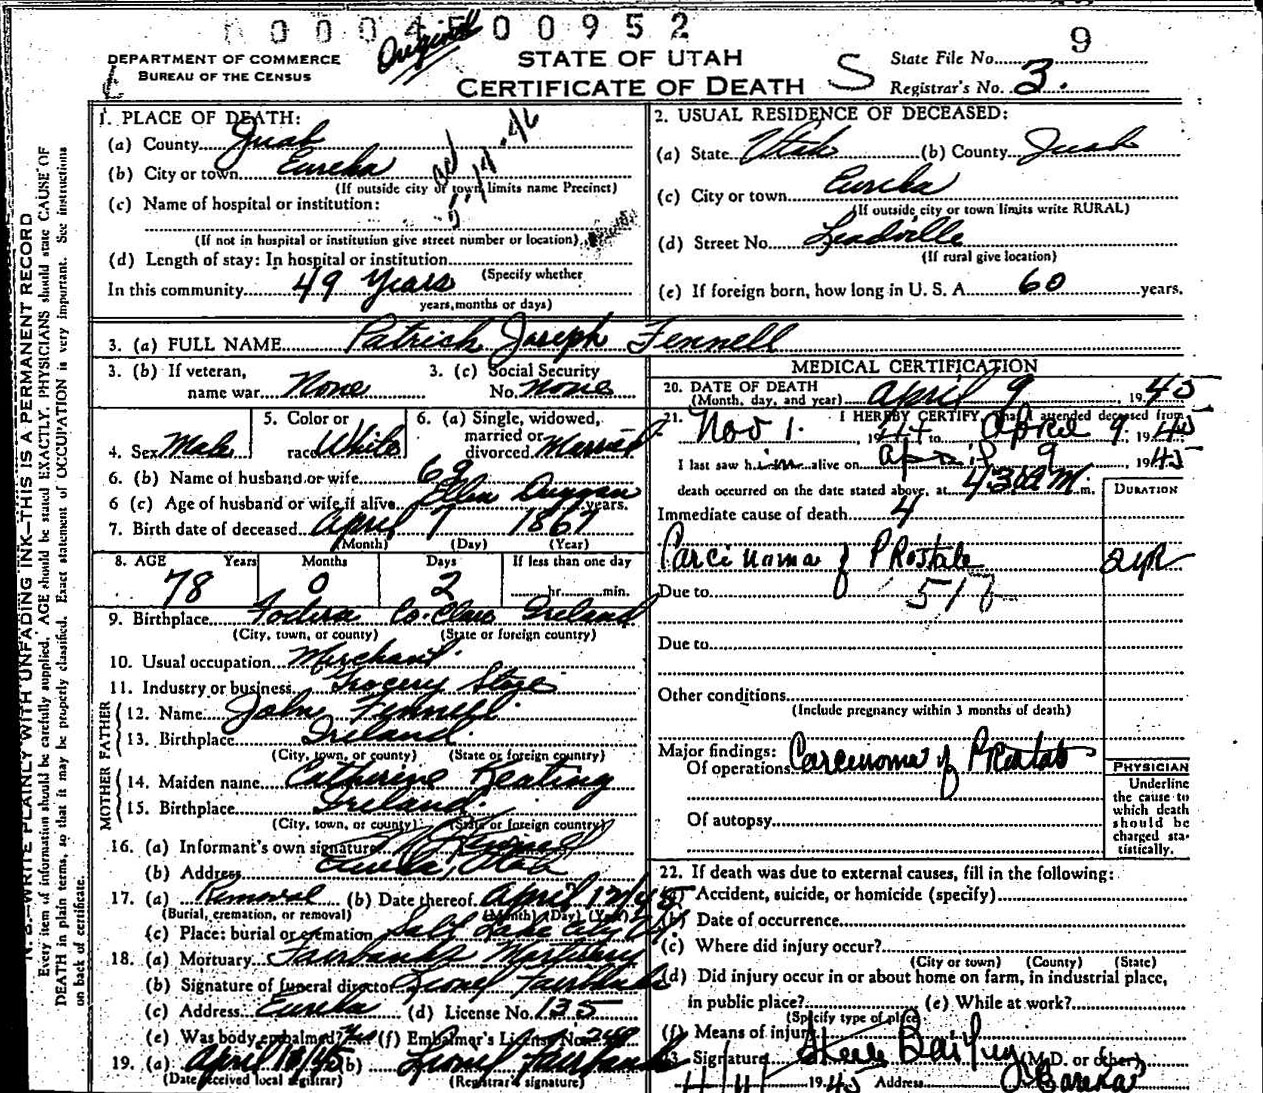 00045 00952
Original
9
DEPARTMENT OF COMMERCE
BUREAU OF THE CENSUS
STATE OF UTAH
CERTIFICATE OF DEATH
S
State File No.
Registrar's No. 3.
N. B.—WRITE PLAINLY WITH UNFADING INK—THIS IS A PERMANENT RECORD
Every item of information should be carefully supplied. AGE should be stated EXACTLY. PHYSICIANS should state CAUSE OF
DEATH in plain terms, so that it may be properly classified. Exact statement of OCCUPATION is very important. See instructions
on back of certificate.
1. PLACE OF DEATH:
(a) County Juab
(b) City or town Eureka
(If outside city or town limits name Precinct)
(c) Name of hospital or institution:
(If not in hospital or institution give street number or location)
(d) Length of stay: In hospital or institution
(Specify whether
In this community 49 Years
years, months or days)
2. USUAL RESIDENCE OF DECEASED:
(a) State Utah (b) County Juab
(c) City or town Eureka
(If outside city or town limits write RURAL)
(d) Street No. Leadville
(If rural give location)
(e) If foreign born, how long in U. S. A. 60 years.
3. (a) FULL NAME Patrick Joseph Fennell
3. (b) If veteran,
name war None
3. (c) Social Security
No. none
4. Sex Male
5. Color or
race White
6. (a) Single, widowed,
married or
divorced Married
6. (b) Name of husband or wife 69
6 (c) Age of husband or wife if alive Ellen Duggan years.
7. Birth date of deceased April 7 1867
(Month) (Day) (Year)
8. AGE Years Months Days If less than one day
78 0 2 hr. min.
9. Birthplace Fodera Co. Clare Ireland
(City, town, or county) (State or foreign country)
10. Usual occupation Merchant
11. Industry or business Grocery Store
FATHER
12. Name John Fennell
13. Birthplace Ireland
(City, town, or county) (State or foreign country)
MOTHER
14. Maiden name Catherine Keating
15. Birthplace Ireland
(City, town, or county) (State or foreign country)
16. (a) Informant's own signature Fennell
(b) Address Eureka, Utah
17. (a) Removal (b) Date thereof April 12/45
(Burial, cremation, or removal) (Month) (Day) (Year)
(c) Place: burial or cremation Salt Lake City
18. (a) Mortuary Fairbanks Mortuary
(b) Signature of funeral director Lionel Fairbanks
(c) Address Eureka (d) License No. 135
(e) Was body embalmed? Yes (f) Embalmer's License No.
19. (a) April (b) Lionel Fairbanks
(Date received local registrar) (Registrar's signature)
MEDICAL CERTIFICATION
20. DATE OF DEATH
(Month, day, and year) April 9, 1945
21. I HEREBY CERTIFY, That I attended deceased from
Nov 1, 1944 to April 9, 1945
I last saw him alive on April 9 1945
death occurred on the date stated above, at 430 a M. m.
Immediate cause of death 4
DURATION
Carcinoma of Prostate 2 yr
Due to
Due to
Other conditions
(Include pregnancy within 3 months of death)
Major findings:
Of operations Carcinoma of Prostate
Of autopsy
PHYSICIAN
Underline
the cause to
which death
should be
charged sta-
tistically.
22. If death was due to external causes, fill in the following:
(a) Accident, suicide, or homicide (specify)
(b) Date of occurrence
(c) Where did injury occur?
(City or town) (County) (State)
(d) Did injury occur in or about home on farm, in industrial place,
in public place? (e) While at work?
(Specify type of place)
(f) Means of injury
23. Signature Steele Bailey (M.D. or other)
1945 Address Eureka